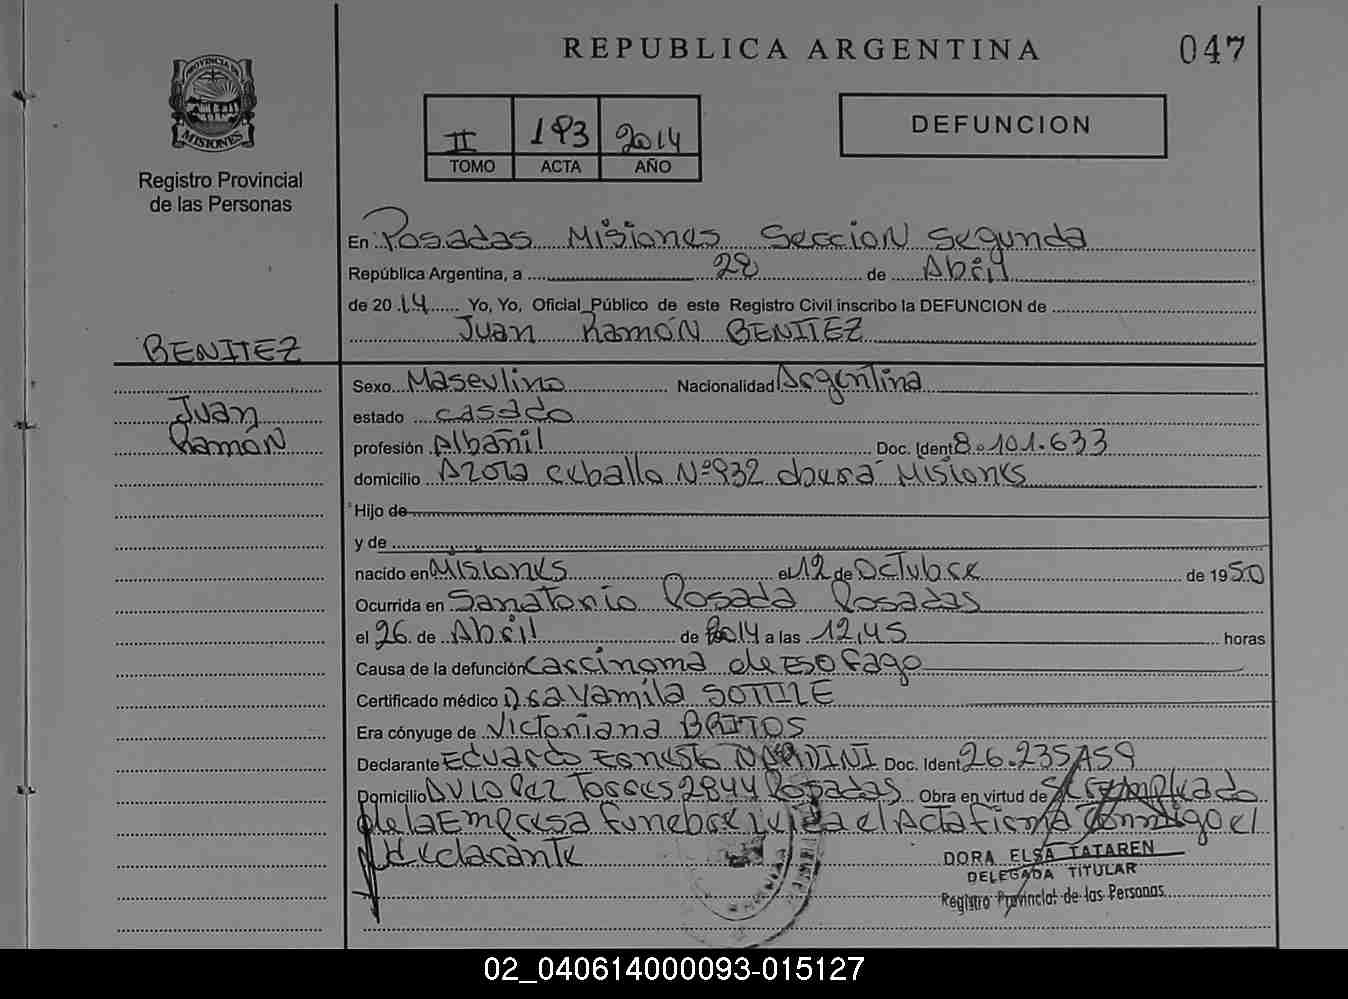 REPUBLICA ARGENTINA
047
PROVINCIA DE
MISIONES
Registro Provincial
de las Personas
II 193 2014
TOMO ACTA AÑO
DEFUNCION
En Posadas Misiones Seccion Segunda
República Argentina, a 28 de Abril
de 2014 Yo, Yo, Oficial Público de este Registro Civil inscribo la DEFUNCION de
Juan Ramón BENITEZ
BENITEZ
Juan
Ramón
Sexo Masculino Nacionalidad Argentina
estado casado
profesión Albañil Doc. Ident 8.101.633
domicilio Ceballo Nº932 Misiones
Hijo de
y de
nacido en Misiones el 12 de Octubre de 1950
Ocurrida en Sanatorio Posada Posadas
el 26 de Abril de 2014 a las 12,45 horas
Causa de la defunción Carcinoma de ESOfago
Certificado médico Dra Yamila SOTTILE
Era cónyuge de Victoriana BRITOS
Declarante Eduardo Ernesto NARDINI Doc. Ident 26.235.459
Domicilio Torres 2844 Posadas Obra en virtud de Ser Empleado
de la Empresa funebre Leida el Acta firma conmigo el
declarante
DORA ELSA TATAREN
DELEGADA TITULAR
Registro Provincial de las Personas
02_040614000093-015127